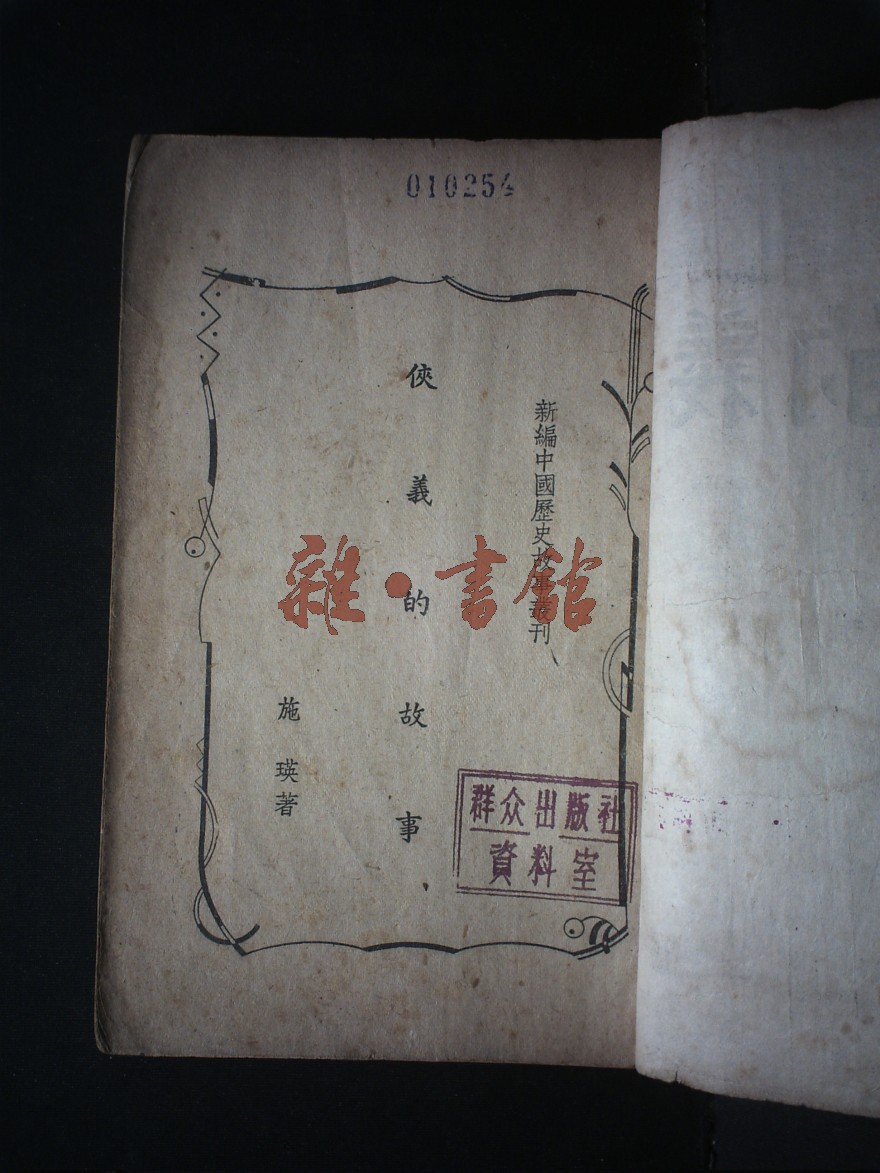 010254
新編中國歷史故事叢刊
俠義的故事
施瑛著
群众出版社
資料室
雜·書館